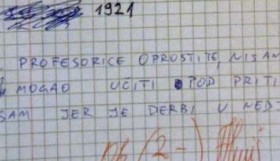 1921
PROFESORICE OPROSTITE NISAM
MOGAO UČITI POD PRITI
SAM JER JE DERBI U NEDJ
(2-)